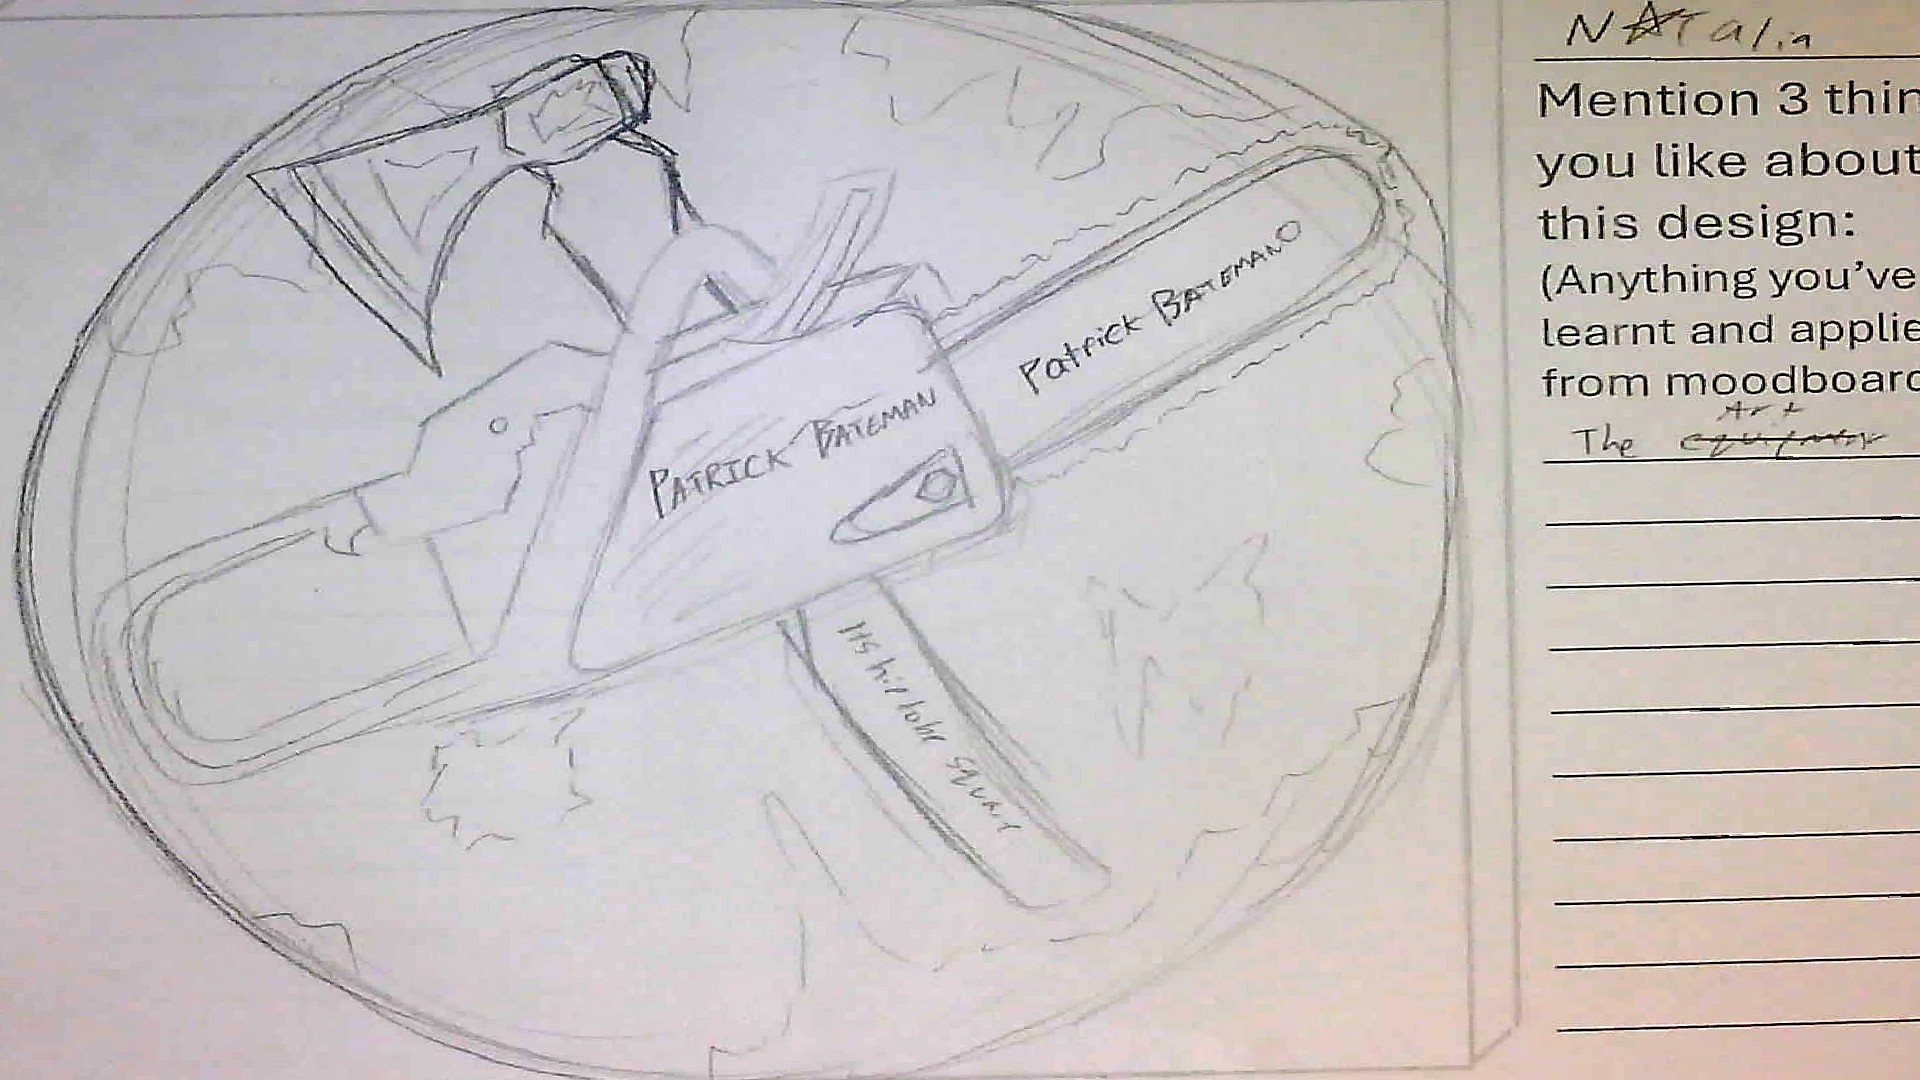 PATRICK BATEMAN
Patrick BATEMAN
NATalia
Mention 3 thin
you like about
this design:
(Anything you’ve
learnt and applie
from moodboard
Art
The